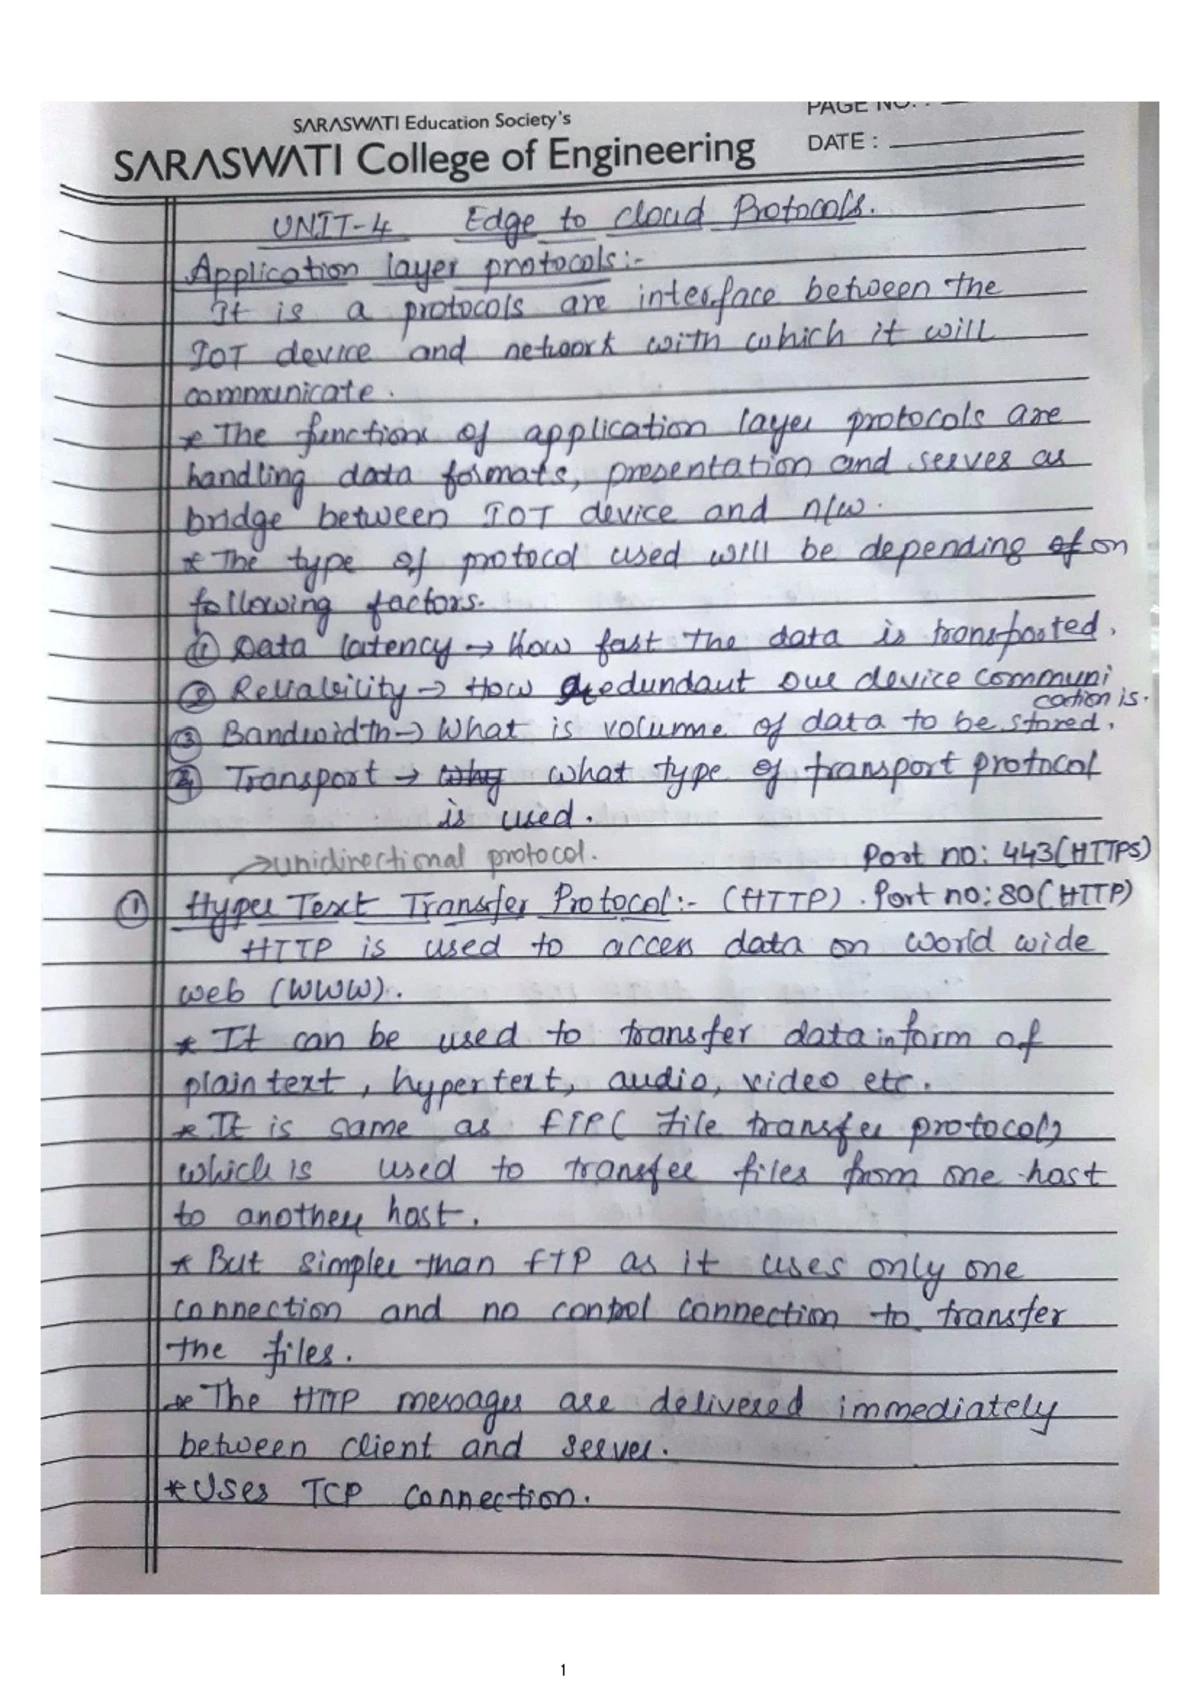 PAGE NO. :
SARASWATI Education Society's
SARASWATI College of Engineering
DATE :
UNIT-4 Edge to cloud Protocols.
Application layer protocols:-
It is a protocols are interface between the
IOT device and network with which it will
communicate.
* The functions of application layer protocols are
handling data formats, presentation and serves as
bridge between IOT device and n/w.
* The type of protocol used will be depending of on
following factors.
① Data latency → How fast the data is transported.
② Reliability → How redundant our device communi
cation is.
③ Bandwidth → What is volume of data to be stored.
④ Transport → Why what type of transport protocol
is used.
→ unidirectional protocol.
Port no: 443(HTTPS)
① Hyper Text Transfer Protocol:- (HTTP). Port no: 80(HTTP)
HTTP is used to access data on world wide
web (WWW).
* It can be used to transfer data in form of
plain text, hypertext, audio, video etc.
* It is same as FTP( File transfer protocol)
which is used to transfer files from one host
to another host.
* But simpler than FTP as it uses only one
connection and no control connection to transfer
the files.
* The HTTP messages are delivered immediately
between client and server.
* Uses TCP connection.
1